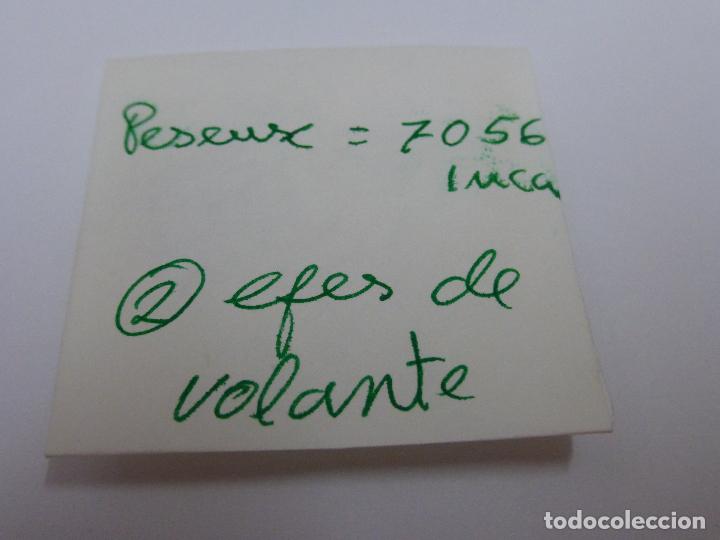 Peseux = 7056
Inca
② efes de
volante
todocoleccion